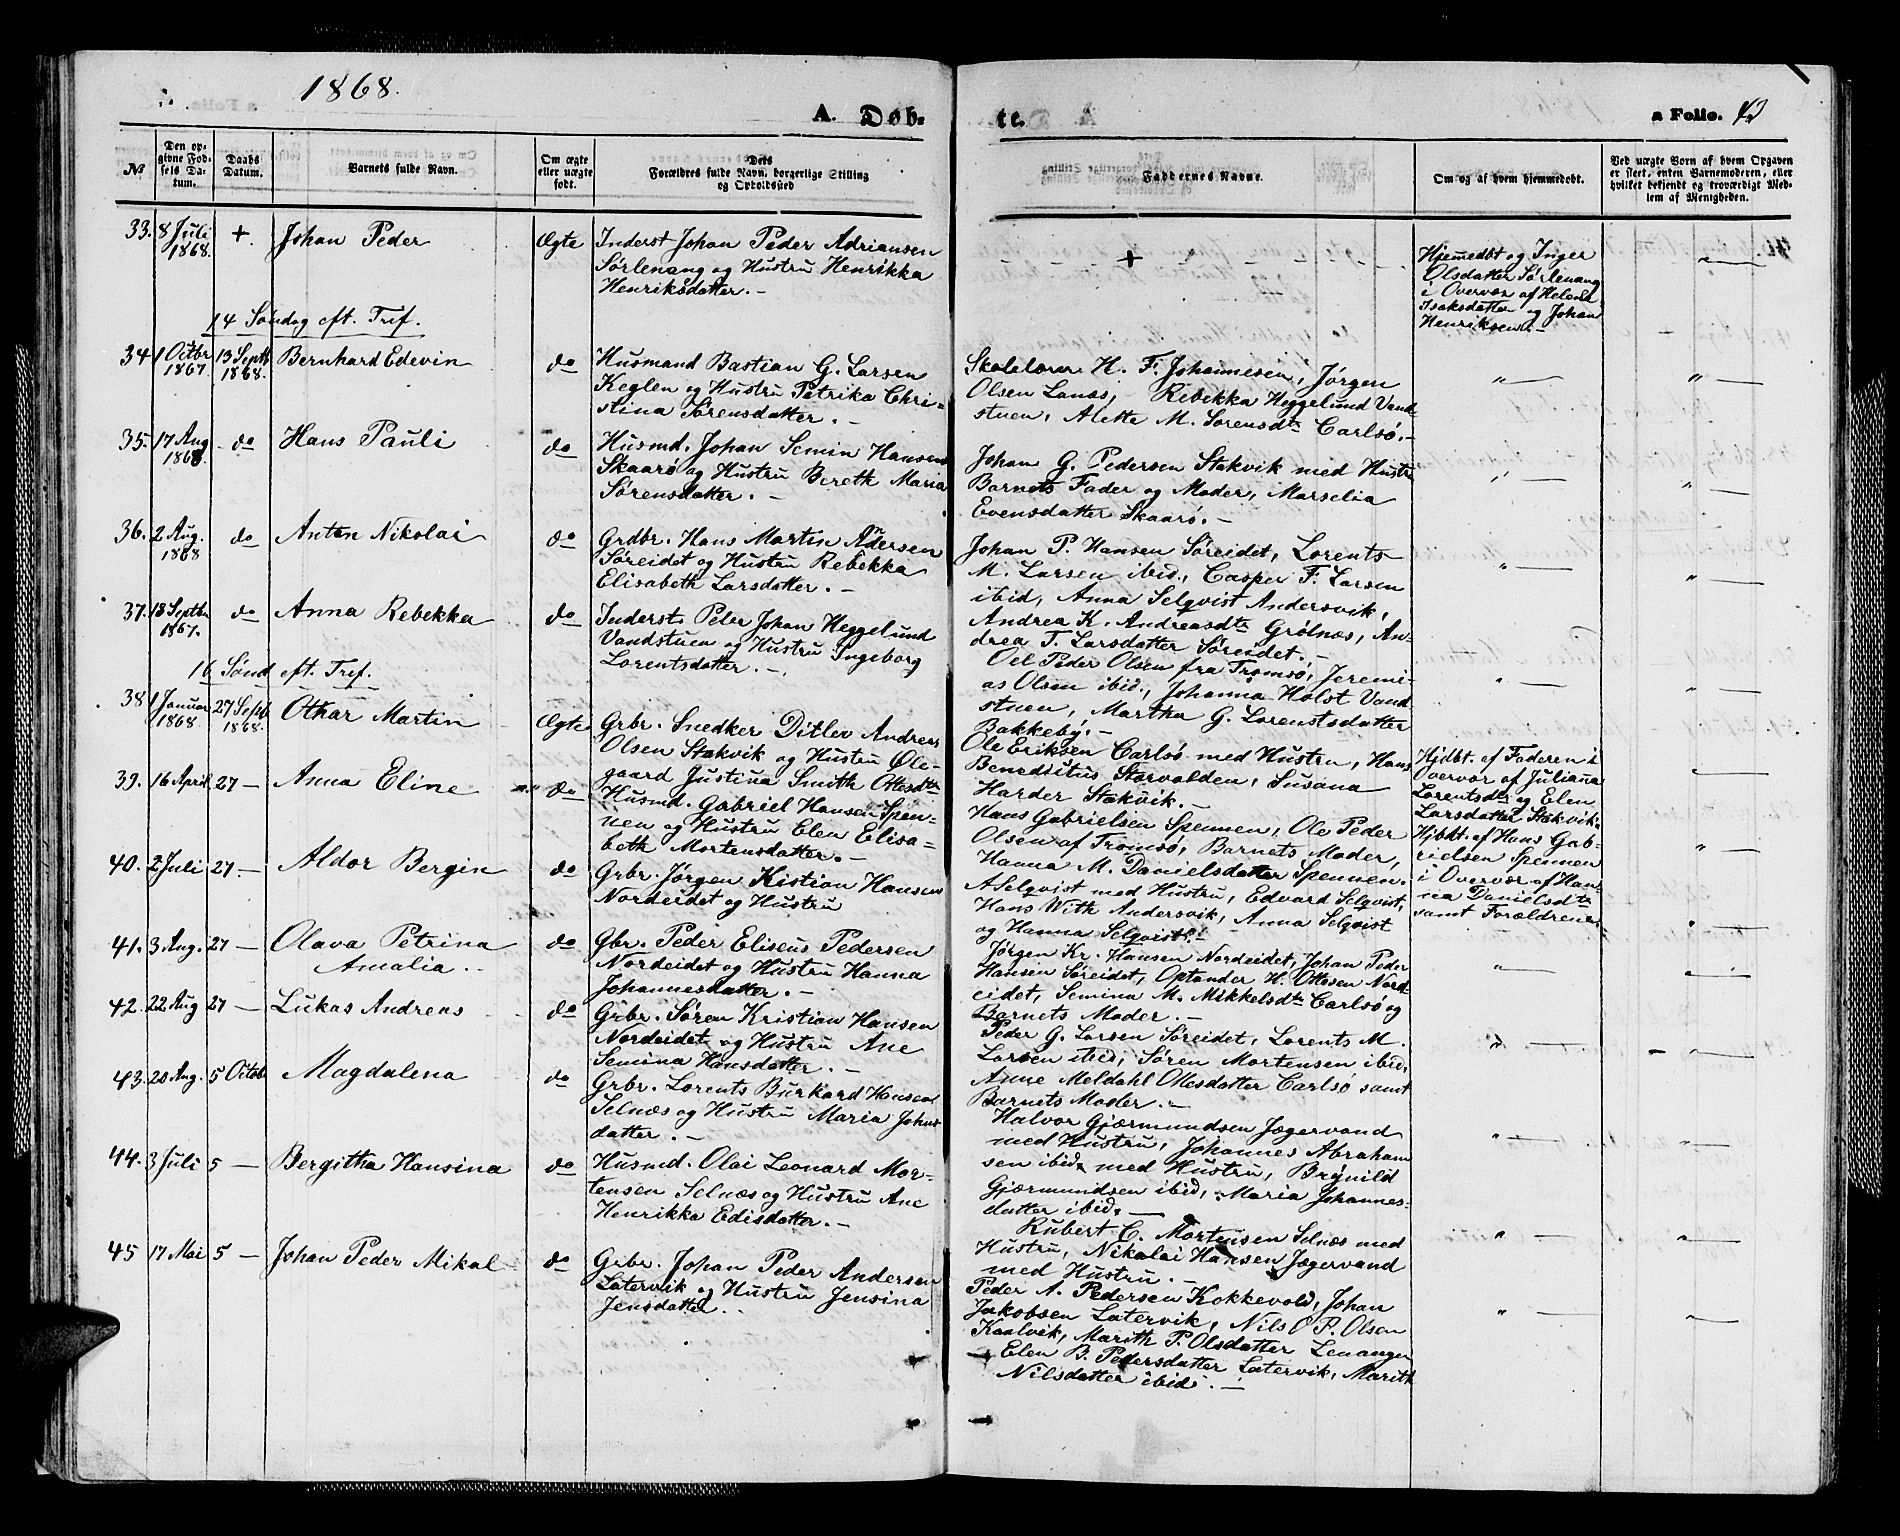 1868.
A. Døb-
te.
a Folio. 42
№
Den op-
givne Fød-
sels Da-
tum.
Daabs
Datum.
Barnets fulde Navn.
Om ægte
eller uægte
født.
Dets
Forældres fulde Navn, borgerlige Stilling
og Opholdssted
Faddernes Navne.
Om og af hvem hjemmedøbt.
Ved uægte Børn af hvem Opgaven
er skeet, enten Barnemoderen, eller
hvilket bekjendt og troværdigt Med-
lem af Menigheden.
33. 8 Juli
1868.
+.
Johan Peder
Ægte
Inderst Johan Peder Adriansen
Sørlenang og Hustru Henrikka
Henriksdatter. -
+
Hjemedbt og Inger
Olsdatter Sørlenang
i Overvær af Helena
Isaksdatter og Johan
Henriksen. -
14 Søndag eft. Tref.
34 1 Octbr
1867
13 Septb
1868.
Bernhard Edevin
do
Husmand Bastian G. Larsen
Keglen og Hustru Petrika Chri-
stina Sørensdatter. -
Skolelærer H. F. Johannesen, Jørgen
Olsen Lanæs, Rebekka Heggelund Vand-
stuen, Aletta M. Sørensdtr Carlsø. -
35. 17 Aug
1868.
do
Hans Pauli
do
Husmd. Johan Semin Hansen
Skaarø og Hustru Bereth Maria
Sørensdatter. -
Johan G. Pedersen Stakvik med Hustru
Barnets Fader og Moder, Marselia
Evensdatter Skaarø. -
36. 2 Aug.
1868
do
Anton Nikolai
do
Grdbr. Hans Martin Andersen
Søreidet og Hustru Rebekka
Elisabeth Larsdatter. -
Johan P. Hansen Søreidet, Lorents
M. Larsen ibid., Casper F. Larsen
ibid, Anna Selqvist Andersvik,
Andrea K. Andreasdtr Grølnæs, An-
drea T. Larsdatter Søreidet. -
37. 18 Septbr
1867.
do
Anna Rebekka
do
Inderst Peter Johan Heggelund
Vandstuen og Hustru Ingeborg
Lorentsdatter. -
Oel Peder Olsen fra Tromsø, Jeremi-
as Olsen ibid., Johanna Holst Vand
stuen, Martha G. Lorentsdatter
Bakkeby. -
16 Sønd eft. Tref.
38 1 Januar
1868.
27 Septb
1868.
Othar Martin
Ægte
Grbr. Snedker Ditlev Andreas
Olsen Stakvik og Hustru Øle-
gaard Justina Smith Ottesdtr
Ole Eriksen Carlsø med Hustru, Hans
Benedictus Storvolden, Susana
Harder Stakvik. -
Hjdbt. af Faderen i
Overvær af Juliana
Lorentsdtr og Elen
Larsdatter Stakvik.
39. 16 April 27 -
Anna Eline
do
Husmd. Gabriel Hansen Spen-
nen og Hustru Elen Elisa-
beth Mortensdatter. -
Hans Gabrielsen Spennen, Ole Peder
Olsen af Tromsø, Barnets Moder,
Hanna M. Danielsdatter Spennen.
Hjbkt. af Hans Gab-
rielsen Spennen
i Overvær af Han-
na Danielsdtr
samt Forældrene.
40. 2 Juli 27. -
Aldor Bergin
do
Grbr. Jørgen Kistian Hansen
Nordeidet og Hustru
A Selqvist med Hustru, Edvard Selqvist,
Hans With Andersvik, Anna Selqvist
og Hanna Selqvist. -
41. 3 Aug. 27 -
Olava Petrina
Amalia. -
do
Gbr. Peder Eliseus Pedersen
Nordeidet og Hustru Hanna
Johannesdatter. -
Jørgen Kr. Hansen Nordeidet, Johan Peder
Hansen Søreidet, Optander H. Ottesen Nord
eidet, Semina M. Mikkelsdtr Carlsø og
Barnets Moder. -
42. 22 Aug 27 -
Lukas Andreas
do
Grbr. Søren Kristian Hansen
Nordeidet og Hustru Ane
Semina Hansdatter. -
Peder G. Larsen Søreidet, Lorents M.
Larsen ibid, Søren Mortensen ibid,
Anne Meldahl Ottesdatter Carlsø samt
Barnets Moder. -
43. 20 Aug. 5 Octob
Magdalena
do
Grbr. Lorents Burkard Hansen
Selnæs og Hustru Maria Johns
datter. -
Halvor Gjærmundsen Jægervand
med Hustru, Johannes Abraham
sen ibid med Hustru, Brynild
Gjærmundsen ibid, Maria Johannes-
datter ibid. -
44. 3 Juli 5 -
Bergitha Hansina
do
Husmd. Olai Leonard Mor-
tensen Selnæs og Hustru Ane
Henrikka Edisdatter. -
Rubert C. Mortensen Selnæs med
Hustru, Nikolai Hansen Jægervand
med Hustru. -
45 17 Mai 5 -
Johan Peder Mikal
do
Grbr. Johan Peder Andersen
Latervik og Hustru Jensina
Jensdatter. -
Peder A. Pedersen Kokkevold, Johan
Jakobsen Latervik, Nils O P. Olsen
Kaalvik, Marith P. Olsdatter Lenangen
Elen B. Pedersdatter Latervik, Marith
Nilsdatter ibid. -